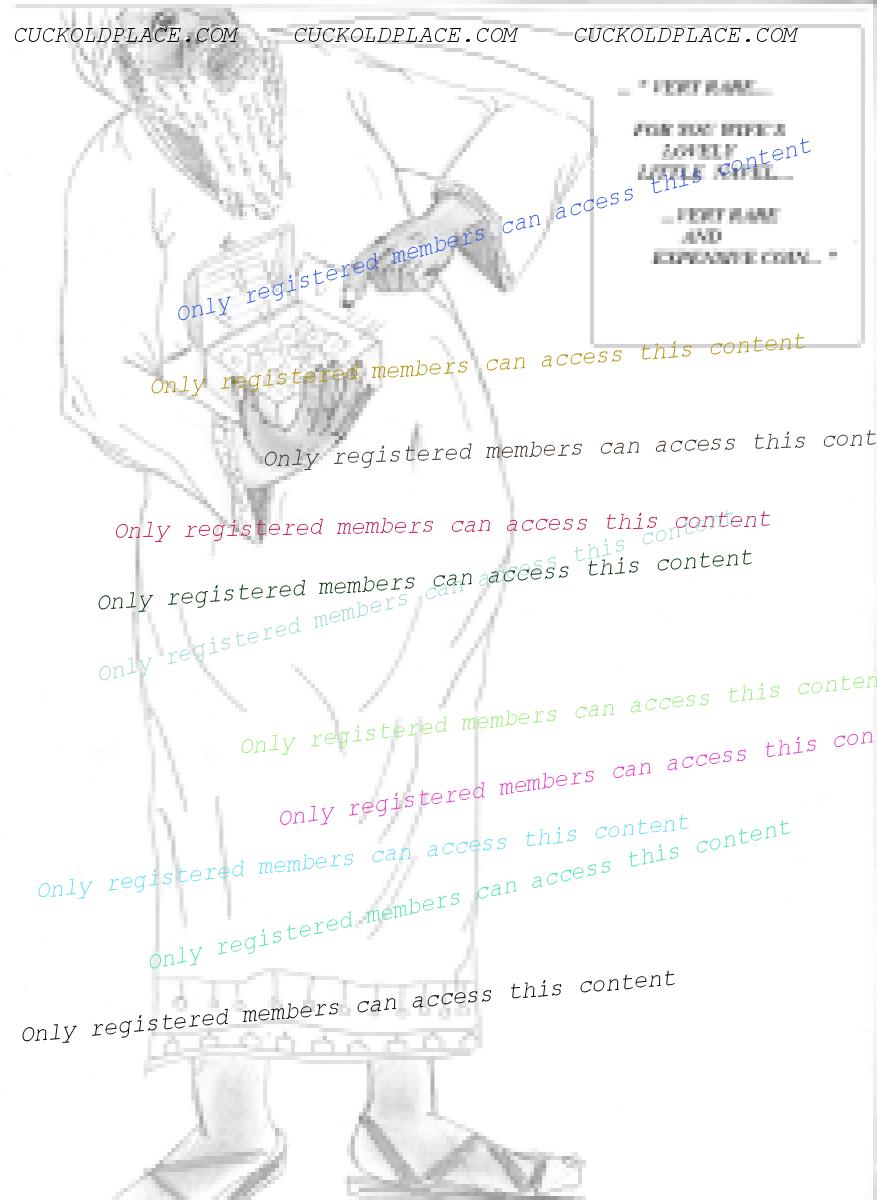 CUCKOLDPLACE.COM CUCKOLDPLACE.COM CUCKOLDPLACE.COM
... " VERY RARE...
FOR YOU WIFE'S
LOVELY
LITTLE NAVEL...
...VERY RARE
AND
EXPENSIVE COIN... "
Only registered members can access this content
Only registered members can access this content
Only registered members can access this cont
Only registered members can access this content
Only registered members can access this content
Only registered members can access this content
Only registered members can access this conten
Only registered members can access this con
Only registered members can access this content
Only registered members can access this content
Only registered members can access this content